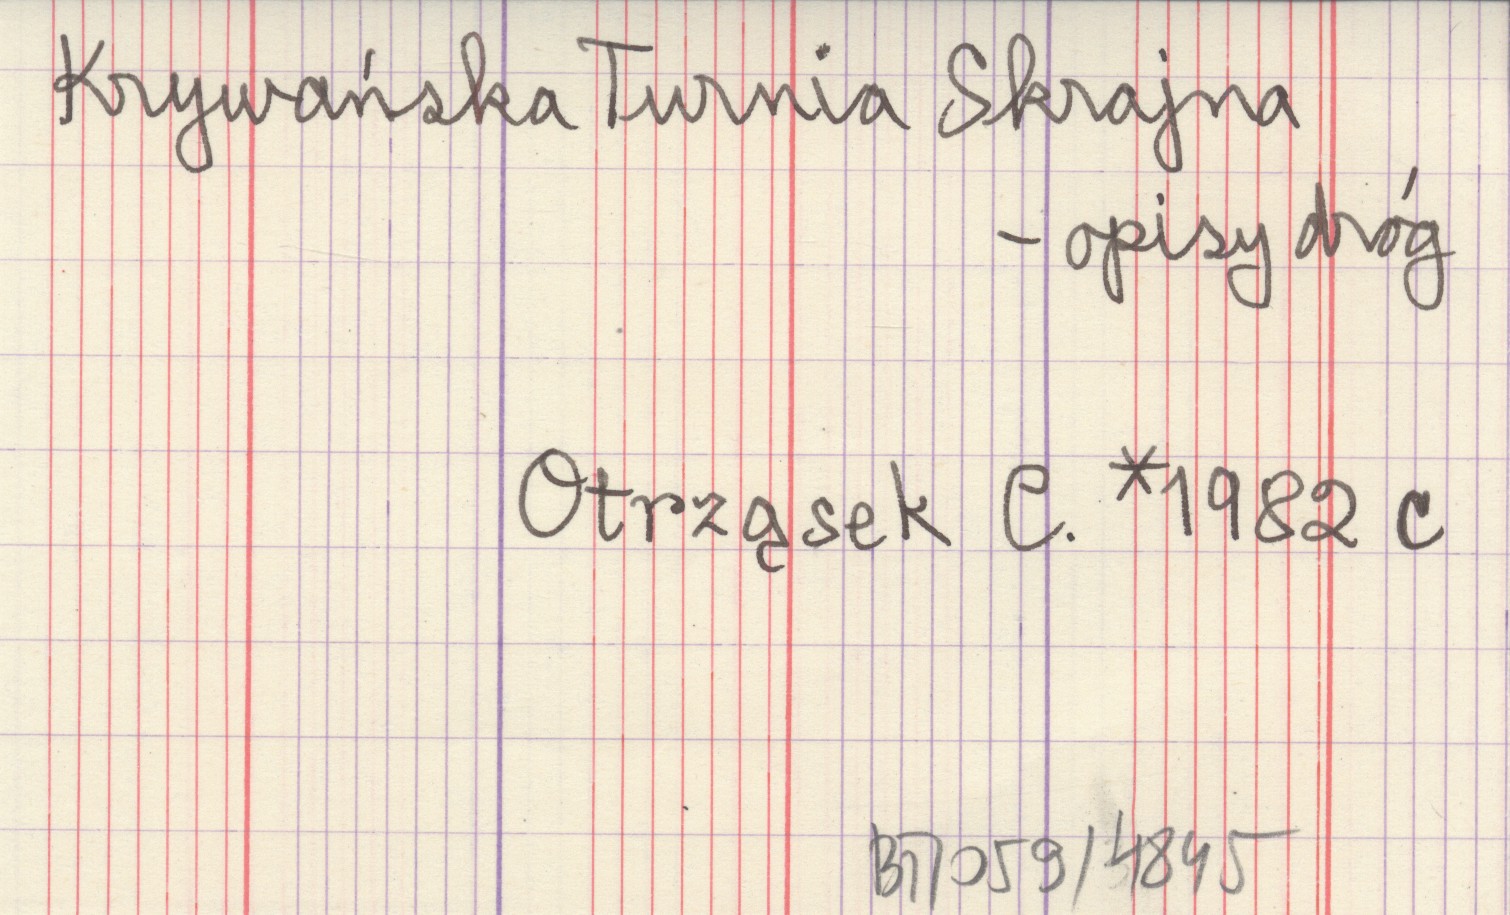 Krywańska Turnia Skrajna
- opisy dróg
Otrząsek C. *1982 c